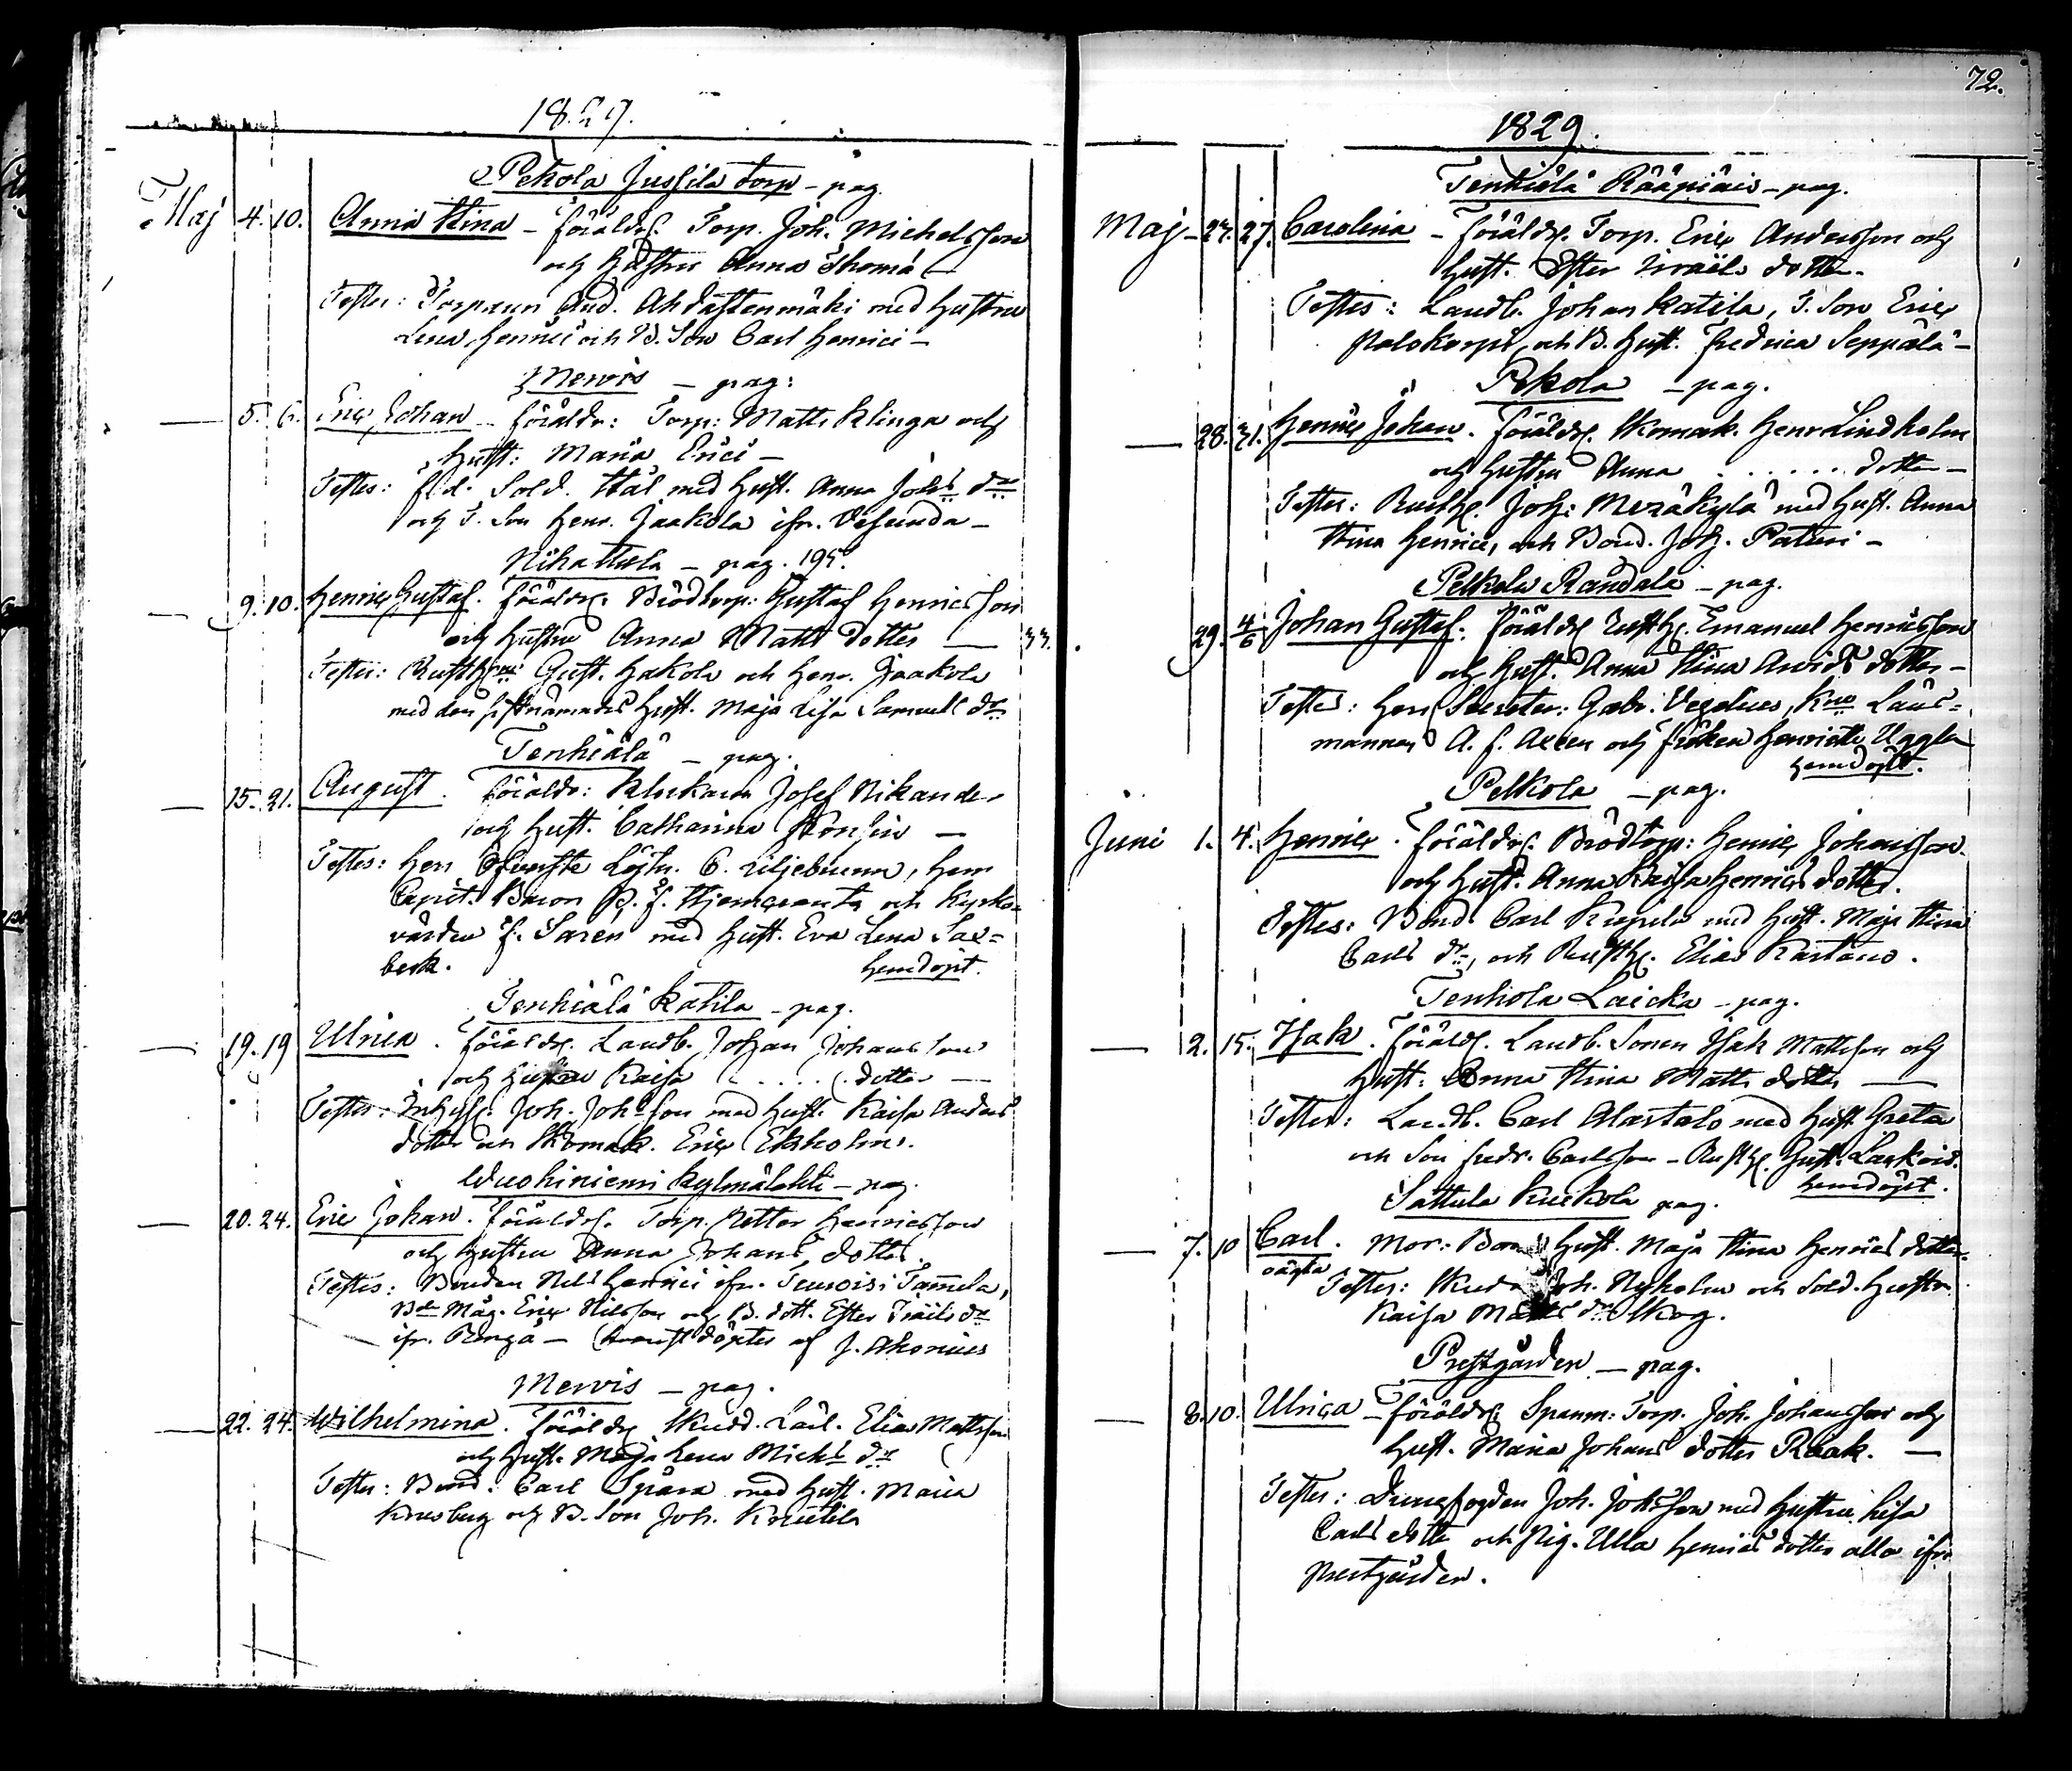 1829.
Pekola Jussila torp - pag.
Maj 4. 10. Anna Stina - föräldr. Torp. Joh. Michelsson
och hustru Anna Thoma -
Testes: Torparen And. Ahdastenmäki med hustru
Lena Henrici och B. Son Carl Henrici -
Mervis - pag:
— 5. 6. Eric Johan - föräldr: Torp: Matts Klinga och
hust: Maria Erici -
Testes: f.d. Sold. Stål med hust. Anna Johs dr
och T. Son Henr. Jaakola ifr. Vesunda -
Nihattula - pag. 195.
— 9. 10. Henric Gustaf. föräldr. Brödtorp: Gustaf Henricsson
och hustru Anna Matts dotter — 33.
Testes: Gust. Hakola och Henr. Jaakola
med den sistnämndes hust. Maja Lisa Samuels dr
Tenhiälä - pag.
— 15. 21. August. föräldr: Klockaren Josef Nikander
och hust. Catharina —
Testes: Herr Öfverste Löjtn. C. Liljebrunn, Herr
Capit. Baron B. F. och Kyrko-
värden F. Saren med hust. Eva Lena Sax-
beck. hemdöpt.
Tenhiälä Katila - pag.
— 19. 19 Ulrica. föräldr. Landb. Johan Johansson
och hustru Kaisa . . . . . dotter —
Testes: Inhyss. Joh. Johsson med hust. Kaisa Anders
dotter Skomak. Eric Ekholm.
Wuohiniemi Kylmälahti - pag.
— 20. 24. Eric Johan. föräldr. Torp. Petter Henricsson
och hustru Anna Johans dotter.
Testes: Bonden Nils Henrici ifr. Tammela,
Måg. Eric Nilsson och B. dott. Ester Israels dr
ifr. Renga - döptes af J. Ahonius
Mervis - pag.
— 22. 24. Wilhelmina. föräldr. Skudd. Elias Mattsson
och hust. Maja Lena Michs dr
Testes: Bond. Carl Spåra med hust. Maria
och B. Son Joh. Knutila
72.
1829.
Tenhiälä Rääpiäis - pag.
Maj - 27. Carolina - föräldr. Torp. Eric Andersson och
hust. Ester Israels dotter.
Testes: Landb. Johan Katila, T. Son Eric
Palokorpi, och B. hust. Fredrica Seppälä -
Pekola - pag.
— 28. 31. Henric Johan. föräldr. Skomak. Henr Lindholm
och hustru Anna . . . . . . dotter -
Testes: Rusth. Joh: med hust. Anna
Stina Henrici, och Bond. Joh. Paturi -
Pelkola Randala - pag.
29. 4/6 Johan Gustaf. föräldr Rusth. Emanuel Henricsson
och hust. Anna Stina Arvids dotter -
Testes: Herr Secreter: Gabr. Vegelius, Läns-
mannen A. F. och fröken Henriette Uggla
hemdöpt.
Pelkola - pag.
Juni 1. 4. Henric. föräldr. Brödtorp: Henric Johansson.
och hust. Anna Kaisa Henrics dotter.
Testes: Bond. Carl med hust. Maja Stina
Carls dr, och Rusth. Elias Kartano.
Tenhola Laicka - pag.
— 2. 15. Isak. föräldr. Landb. Sonen Isak Mattsson och
hust: Anna Stina Matts dotter —
Testes: Landb. Carl Alastalo med hust Greta
och Son Fredr. Carlsson - Rusth. Gust.
hemdöpt.
Sattula Kuckola pag.
— 7. 10 Carl. Mor: hust. Maja Stina Henrics dotter.
oägta
Testes: Joh. Nyholm och Sold. hustr.
Kaisa Matts dr Skog.
Prestgården - pag.
— 8. 10. Ulrica - föräldr. Spanm: Torp. Joh. Johansson och
hust. Maria Johans dotter Raak. —
Testes: Joh. Johsson med hustru Lisa
Carls dotter och Pig. Ulla Henrics dotter alla ifrn
Prestgården.